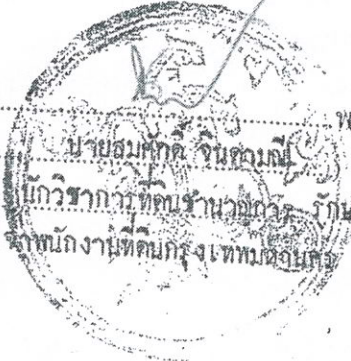 พ
นายสมศักดิ์ จินตามณี
นักวิชาการที่ดินชำนาญการ รักษ
เจ้าพนักงานที่ดินกรุงเทพมหานคร